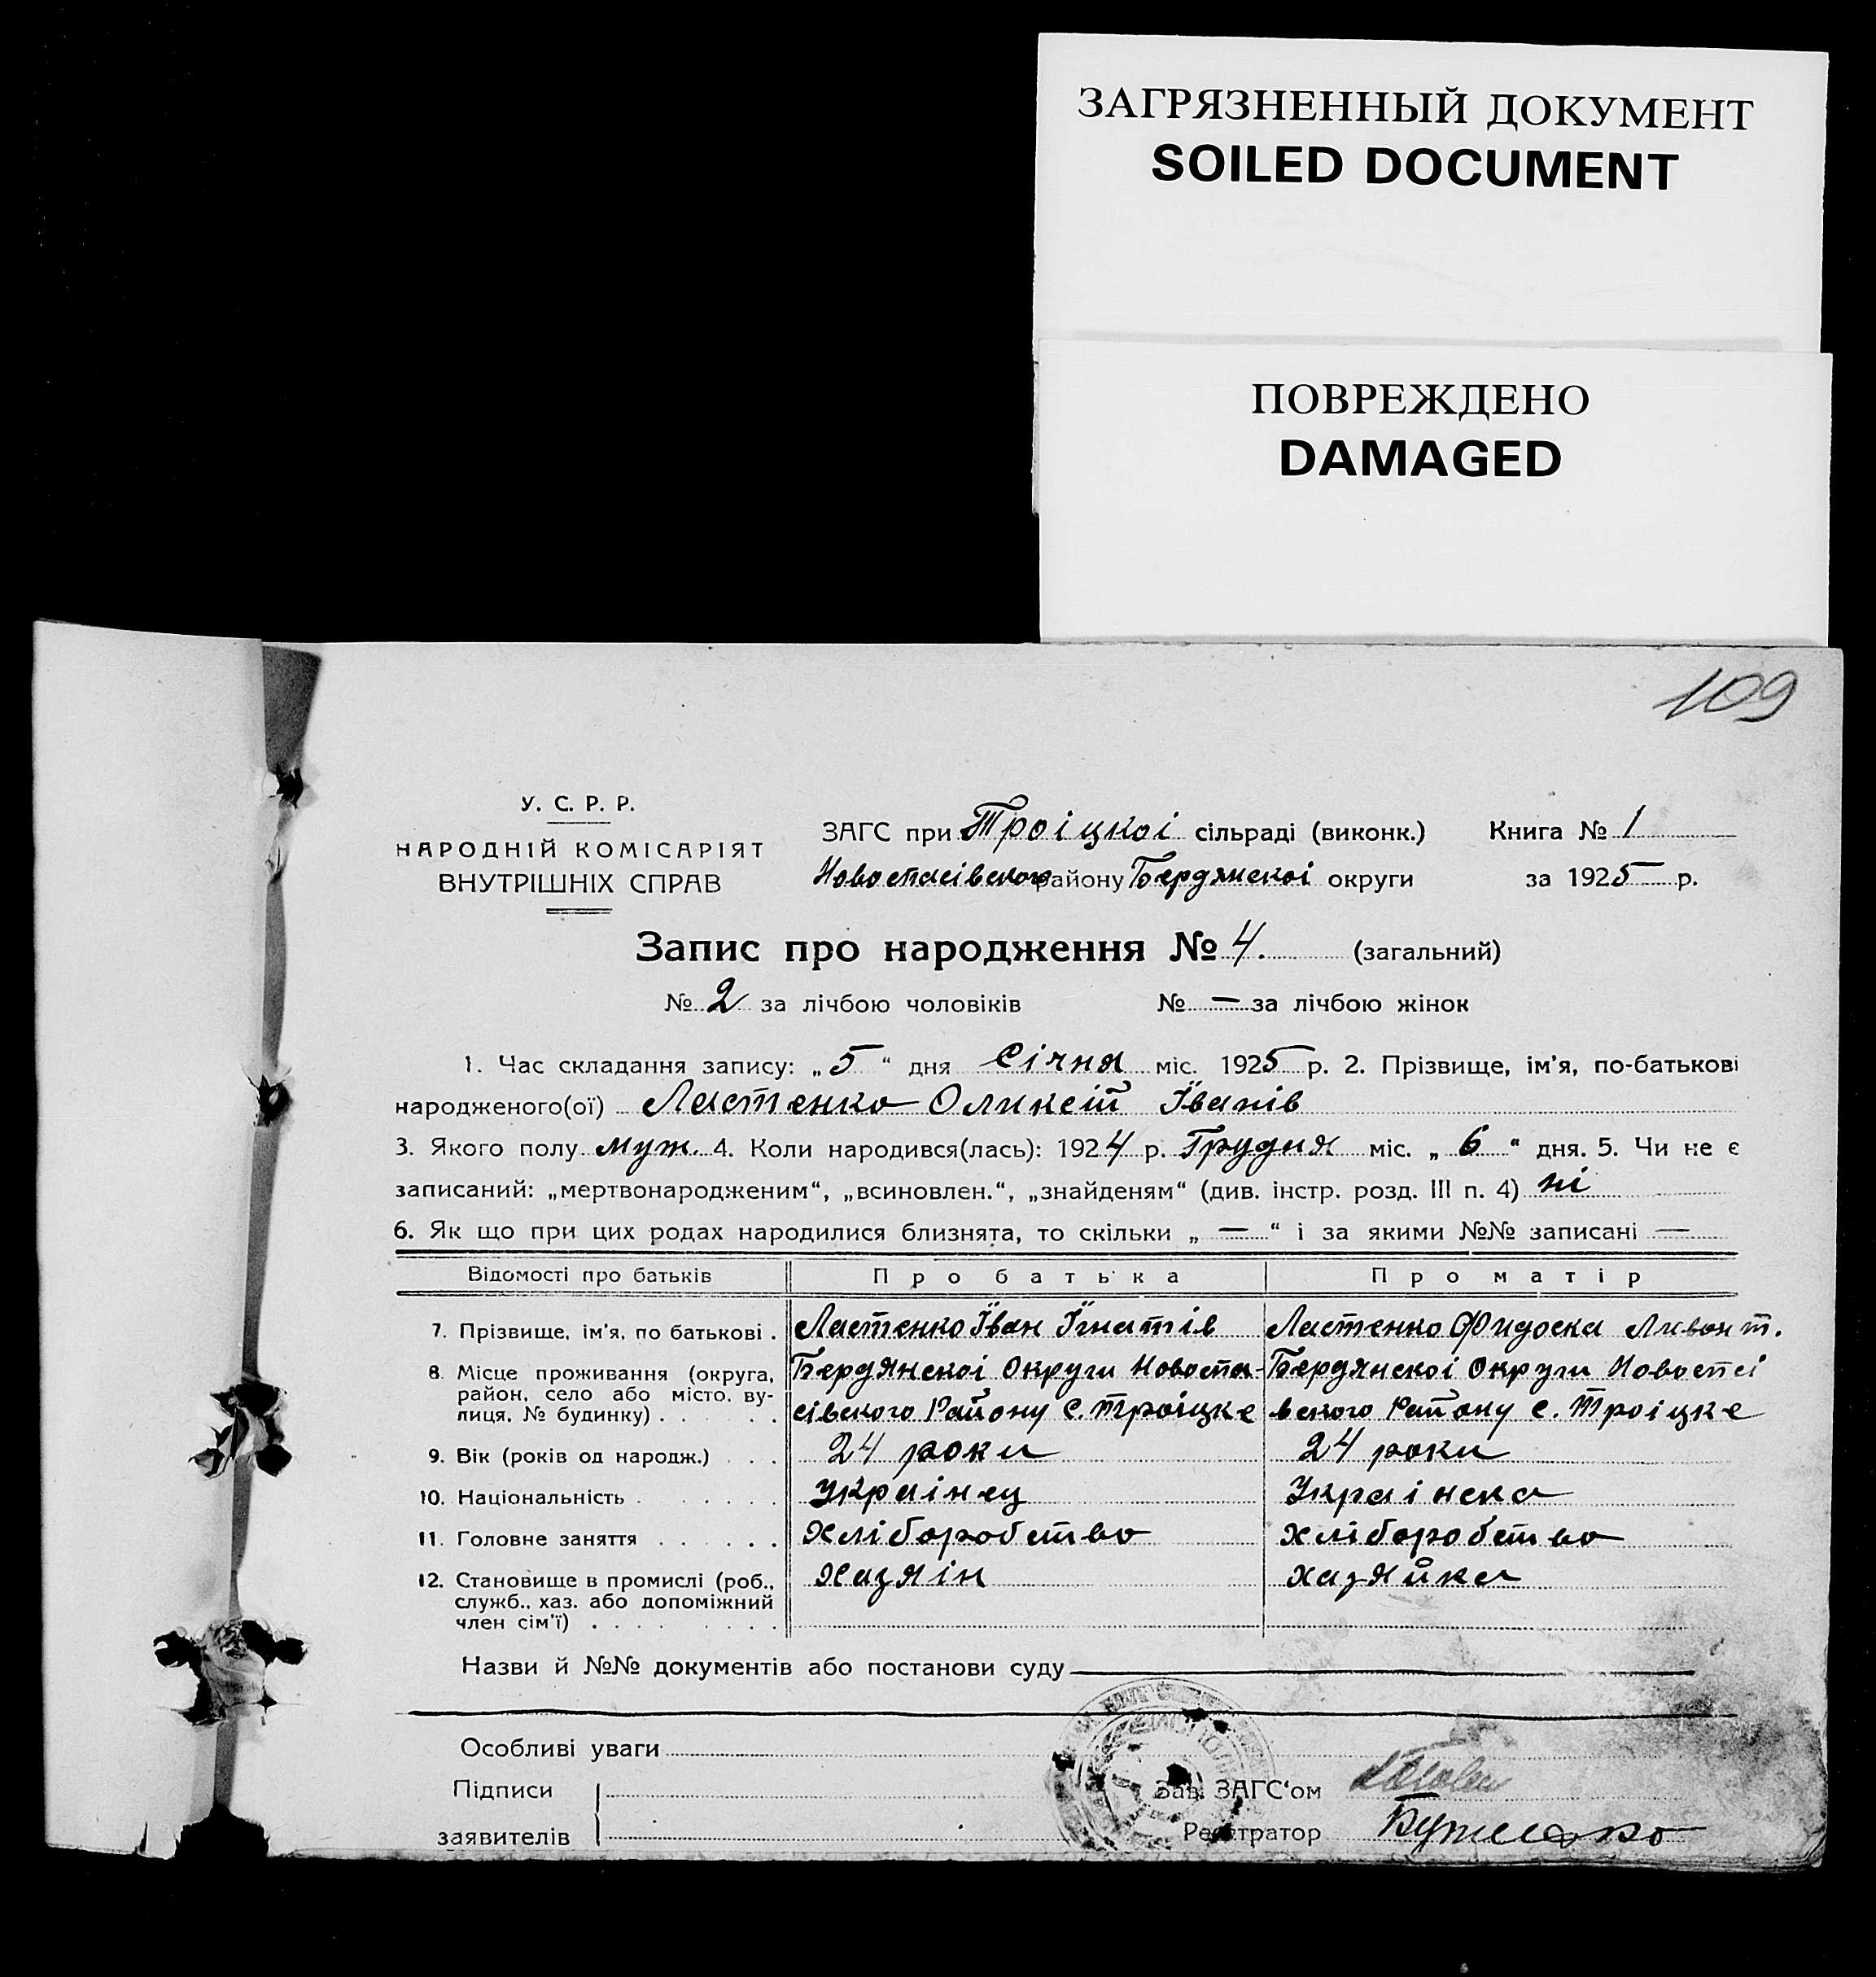 ЗАГРЯЗНЕННЫЙ ДОКУМЕНТ
SOILED DOCUMENT
ПОВРЕЖДЕНО
DAMAGED
109
У. С. Р. Р.
НАРОДНІЙ КОМІСАРІЯТ
ВНУТРІШНІХ СПРАВ
ЗАГС при Троіцкоі сільраді (виконк.) Книга № 1
Новоспасівского району Бердянскоі округи за 1925 р.
Запис про народження № 4. (загальний)
№ 2 за лічбою чоловіків № — за лічбою жінок
1. Час складання запису: „5“ дня Січня міс. 1925 р. 2. Прізвище, ім'я, по-батькові
народженого(ої) Ластенко Оликсій Іванів
3. Якого полу муж. 4. Коли народився(лась): 1924 р. Грудня міс. „6“ дня. 5. Чи не є
записаний: „мертвонародженим“, „всиновлен.“, „знайденям“ (див. інстр. розд. III п. 4) ні
6. Як що при цих родах народилися близнята, то скільки „—“ і за якими №№ записані —
Відомості про батьків Про батька Про матір
7. Прізвище, ім'я, по батькові . Ластенко Іван Ігнатів Ластенко Фидоска Ливонт.
8. Місце проживання (округа, Бердянскоі Округи Новоспа- Бердянскоі Округи Новоспсі
район, село або місто, ву-
лиця, № будинку) . . . . сівского Району С. Троіцке вского Району с. Троіцке
9. Вік (років од народж.) . . . 24 роки 24 роки
10. Національність . . . . . . Украінец Украінска
11. Головне заняття . . . . . . Хліборобство хліборобство
12. Становище в промислі (роб., Хазяін хазяйка
служб., хаз. або допоміжний
член сім'ї) . . . . . . . .
Назви й №№ документів або постанови суду
Особливі уваги
Підписи Зав. ЗАГС'ом
заявителів Реєстратор